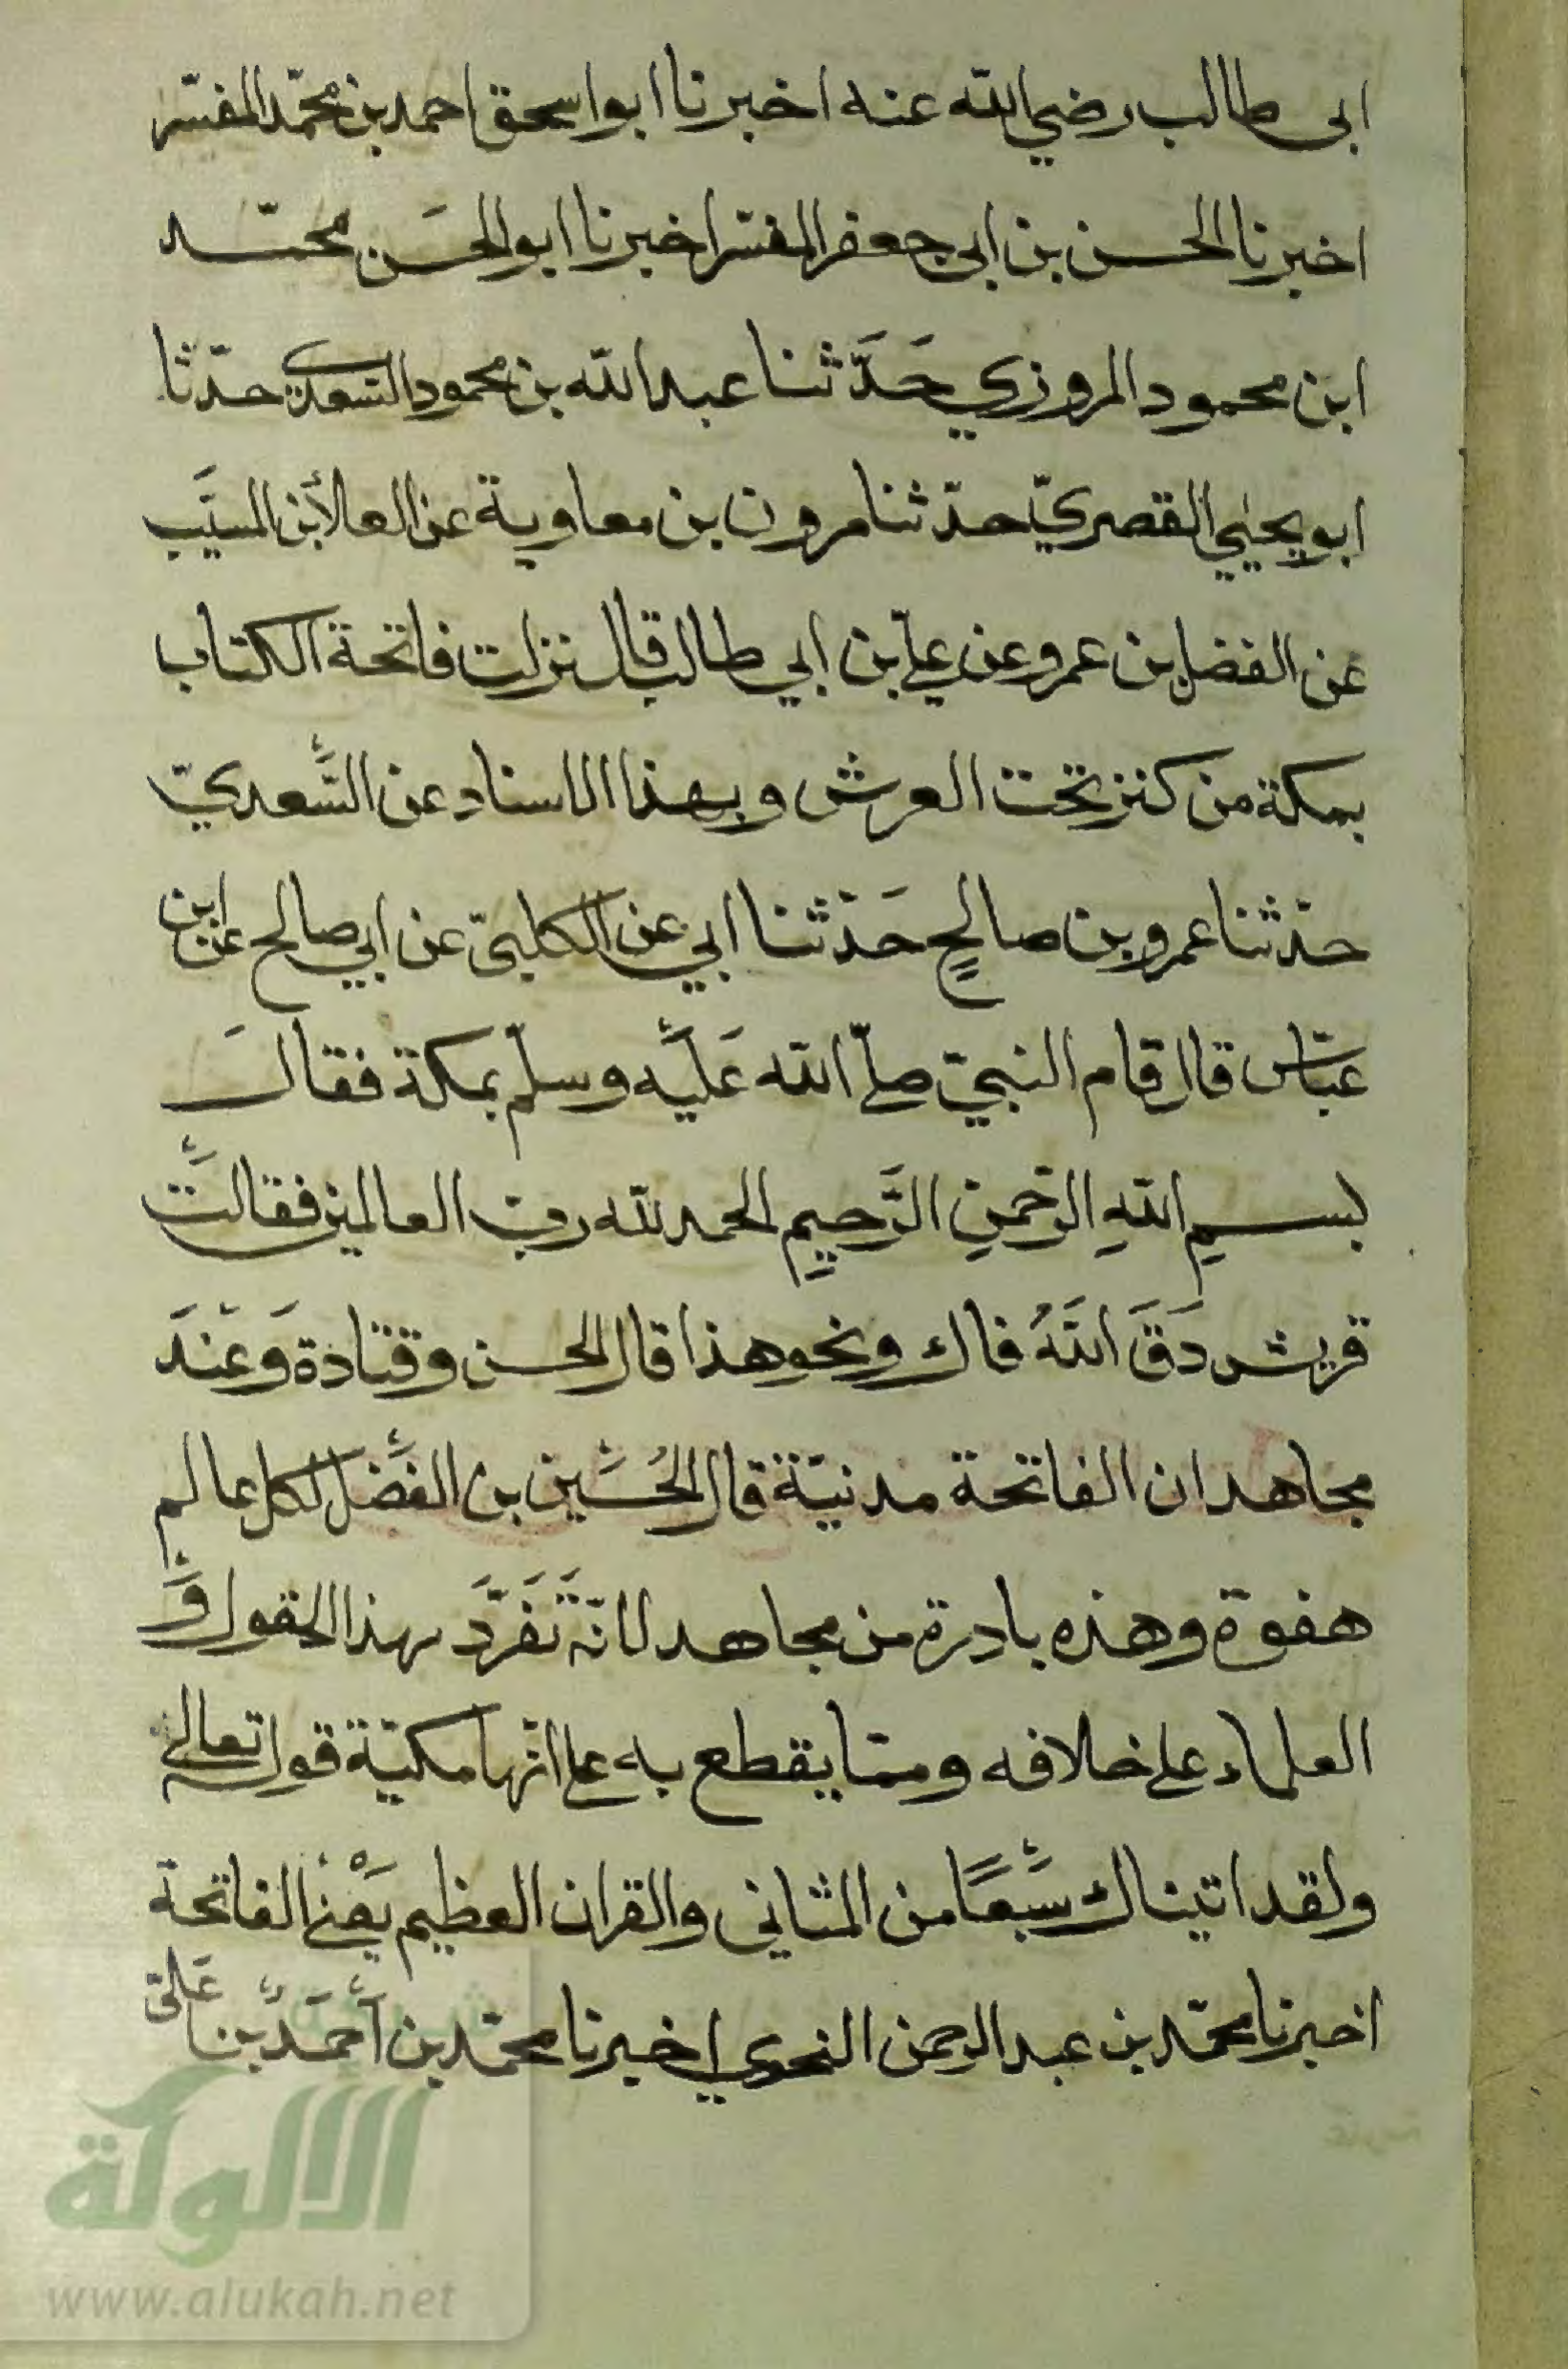 ابى طالب رضي الله عنه اخبرنا ابو اسحق احمد بن محمّد المفسّر
اخبرنا الحسن بن ابى جعفر المفسّر اخبرنا ابو الحسَن محمّد
ابن محمود المروزي حَدَّثنا عبد الله بن محمود السّعدي حدّثنا
ابو يحيٰي القصريّ حدّثنا مرون بن معاوية عن العلا بن المسيَّب
عن الفضل بن عمرو عن علي بن ابي طالب قال نزلت فاتحة الكتاب
بمكة من كنز تحت العرش و بهذا الاسناد عن السَّعديّ
حدّثنا عمرو بن صالحٍ حَدّثنا ابي عن الكلبيّ عن ابي صالح عن ابن
عبّاس قال قام النبيّ صلّى الله عَليْه وسلّم بمكة فقالَ
بسمِ اللهِ الرّحمنِ الرَّحيمِ الحمد لله ربّ العالمين فقالتْ
قريش دَقَ اللهُ فاك ونحو هذا قال الحسن وقتادة وَعنْدَ
مجاهد ان الفاتحة مدنيّة قال الحُسَين بن الفَضل لكل عالم
هفوة وهذه بادرة من مجاهد لانّه تَفَرَّدَ بهذا القول وَ
العلماء على خلافه وممّا يقطع به على انّها مكيّة قوله تعالى
ولقد اتيناك سَبعًا من المثاني والقران العظيم يَعْني الفاتحة
اخبرنا محمّد بن عبد الرحمن النحوي اخبرنا محمّد بن أحمَد بن عَليّ
الالوكة
www.alukah.net